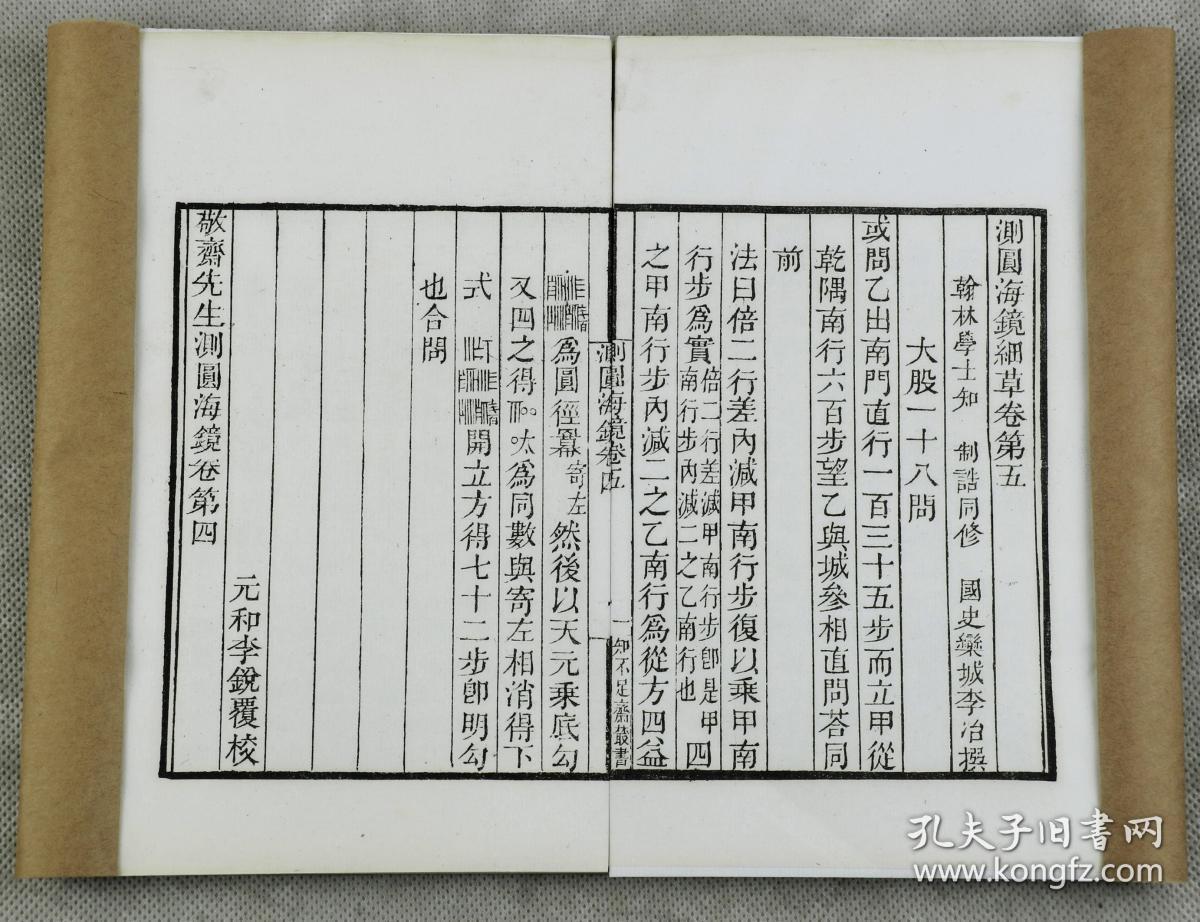 測圓海鏡細草卷第五
翰林學士知 制誥同修 國史欒城李冶撰
大股一十八問
或問乙出南門直行一百三十五步而立甲從
乾隅南行六百步望乙與城參相直問荅同
前
法曰倍二行差內減甲南行步復以乘甲南
行步爲實倍二行差減甲南行步卽是甲南行步內減二之乙南行也四
之甲南行步內減二之乙南行爲從方四益
測圓海鏡卷五
測圓海鏡卷四
一
知不足齋叢書
爲圓徑冪寄左然後以天元乘底勾
又四之得爲同數與寄左相消得下
式
開立方得七十二步卽明勾
也合問
敬齋先生測圓海鏡卷第四
元和李銳覆校
孔夫子旧书网
www.kongfz.com